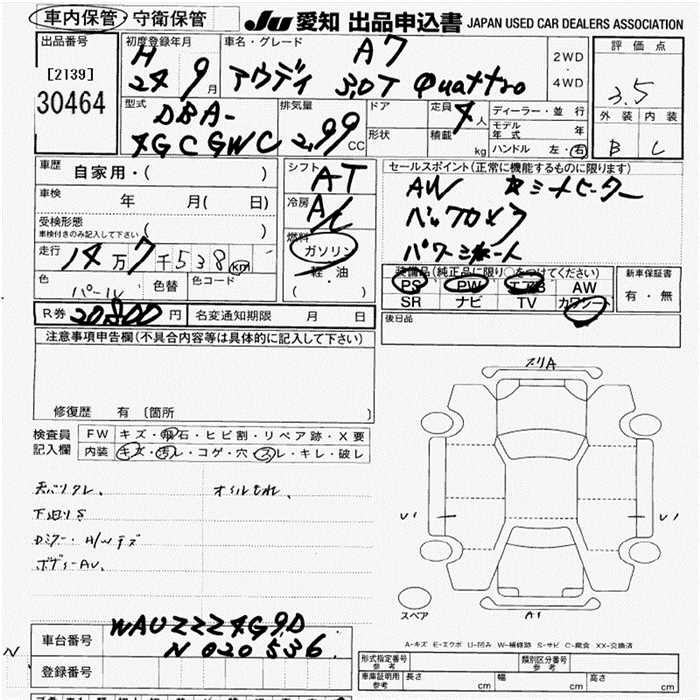 車内保管・守衛保管
JU 愛知 出品申込書 JAPAN USED CAR DEALERS ASSOCIATION
出品番号
[2139]
30464
初度登録年月
H
24 9月
車名・グレード
A7
アウディ 3,0T quattro
2WD
・
4WD
評価点
3.5
外装 内装
B C
型式
DBA-
4GCGWC
排気量
2,99
CC
ドア
形状
定員 4人
積載 kg
ディーラー・並行
モデル年式 年
ハンドル 左・右
車歴
自家用・( )
車検
年 月( 日)
受検形態
車検付きのみ記入して下さい ( )
走行
14万7千538km
色
パール
色替
色コード
シフト
AT
冷房
A/C
燃料
ガソリン
軽・油
( )
セールスポイント(正常に機能するものに限ります)
AW
バックカメラ
パワーシート
装備品(純正品に限り○をつけてください)
PS PW エアB AW
SR ナビ TV カワシート
新車保証書
有・無
後日品
R券 20,800円
名変通知期限 月 日
注意事項申告欄(不具合内容等は具体的に記入して下さい)
修復歴 有 〔箇所 〕
検査員
記入欄
FW キズ・飛石・ヒビ割・リペア跡・X要
内装 キズ・汚レ・コゲ・穴・スレ・キレ・破レ
天バリタレ、 オイルもれ、
下廻りS
Dミラー・H/Nキズ
ボディーAU、
スリA
U1
U1
A1
スペア
A-キズ E-エクボ U-凹み W-補修跡 S-サビ C-腐食 XX-交換済
車台番号
WAUZZZ4G9D
N020536
N
登録番号
形式指定番号
参考
類別区分番号
参考
車庫証明用
参考
長さ cm 幅 cm 高さ cm